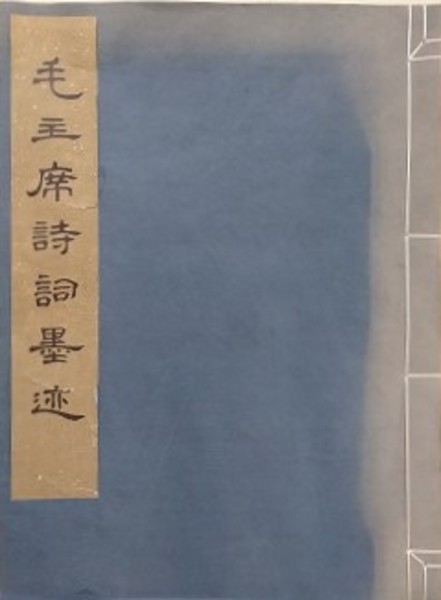 毛主席詩詞墨迹